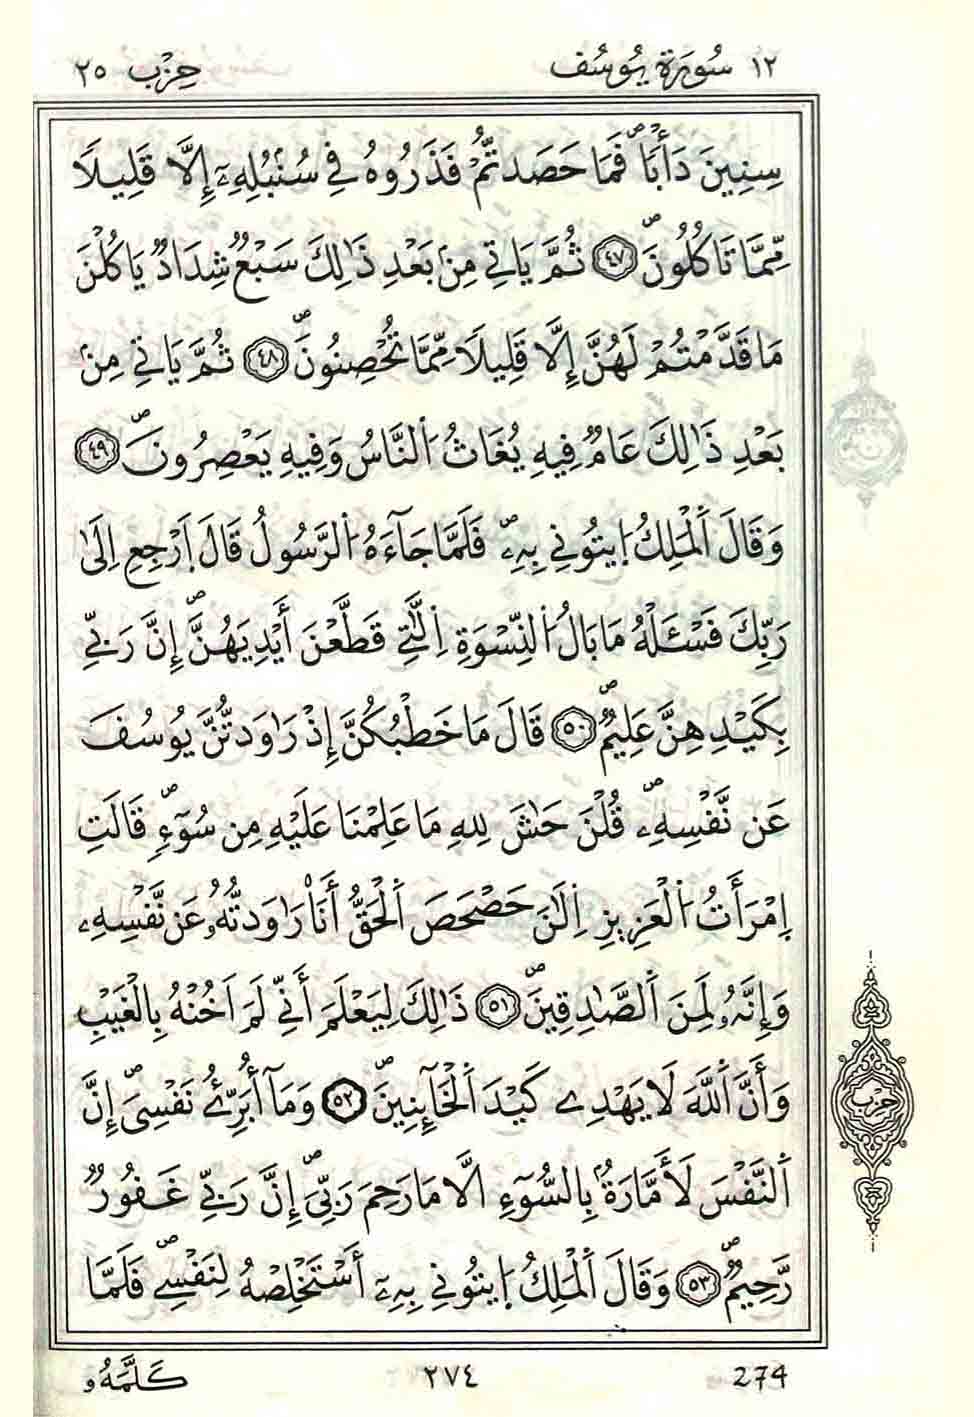 ١٢ سُورَة يُوسُف حِزْب ٢٥
سِنِينَ دَأْبٗاۖ فَمَا حَصَدتُّمْ فَذَرُوهُ فِي سُنۢبُلِهِۦٓ إِلَّا قَلِيلٗا
مِّمَّا تَاكُلُونَۖ ٤٧ ثُمَّ يَاتِي مِنۢ بَعْدِ ذَٰلِكَ سَبْعٞ شِدَادٞ يَاكُلْنَ
مَا قَدَّمْتُمْ لَهُنَّ إِلَّا قَلِيلٗا مِّمَّا تُحْصِنُونَۖ ٤٨ ثُمَّ يَاتِي مِنۢ
بَعْدِ ذَٰلِكَ عَامٞ فِيهِ يُغَاثُ اُ۬لنَّاسُ وَفِيهِ يَعْصِرُونَۖ ٤٩
وَقَالَ اَ۬لْمَلِكُ اُ۪يتُونِي بِهِۦۖ فَلَمَّا جَآءَهُ اُ۬لرَّسُولُ قَالَ اَ۪رْجِعِ اِلَىٰ
رَبِّكَ فَسْـَٔلْهُ مَا بَالُ اُ۬لنِّسْوَةِ اِ۬لَّٰتِي قَطَّعْنَ أَيْدِيَهُنَّۖ إِنَّ رَبِّي
بِكَيْدِهِنَّ عَلِيمٞۖ ٥٠ قَالَ مَا خَطْبُكُنَّ إِذْ رَٰوَدتُّنَّ يُوسُفَ
عَن نَّفْسِهِۦۖ قُلْنَ حَٰشَ لِلهِ مَا عَلِمْنَا عَلَيْهِ مِن سُوٓءٖۖ قَالَتِ
اِ۪مْرَأَتُ اُ۬لْعَزِيزِ اِ۬لَٰنَ حَصْحَصَ اَ۬لْحَقُّ أَنَا رَٰوَدتُّهُۥ عَن نَّفْسِهِۦ
وَإِنَّهُۥ لَمِنَ اَ۬لصَّٰدِقِينَۖ ٥١ ذَٰلِكَ لِيَعْلَمَ أَنِّي لَمَ اَخُنْهُ بِالْغَيْبِ
وَأَنَّ اَ۬للَّهَ لَا يَهْدِے كَيْدَ اَ۬لْخَآئِنِينَۖ ٥٢ وَمَآ أُبَرِّئُ نَفْسِيَۖ إِنَّ
اَ۬لنَّفْسَ لَأَمَّارَةُۢ بِالسُّوٓءِ الَّا مَا رَحِمَ رَبِّيَۖ إِنَّ رَبِّي غَفُورٞ
رَّحِيمٞۖ ٥٣ وَقَالَ اَ۬لْمَلِكُ اُ۪يتُونِي بِهِۦٓ أَسْتَخْلِصْهُ لِنَفْسِيۖ فَلَمَّا
حزب
274 ٢٧٤ كَلَّمَهُۥ